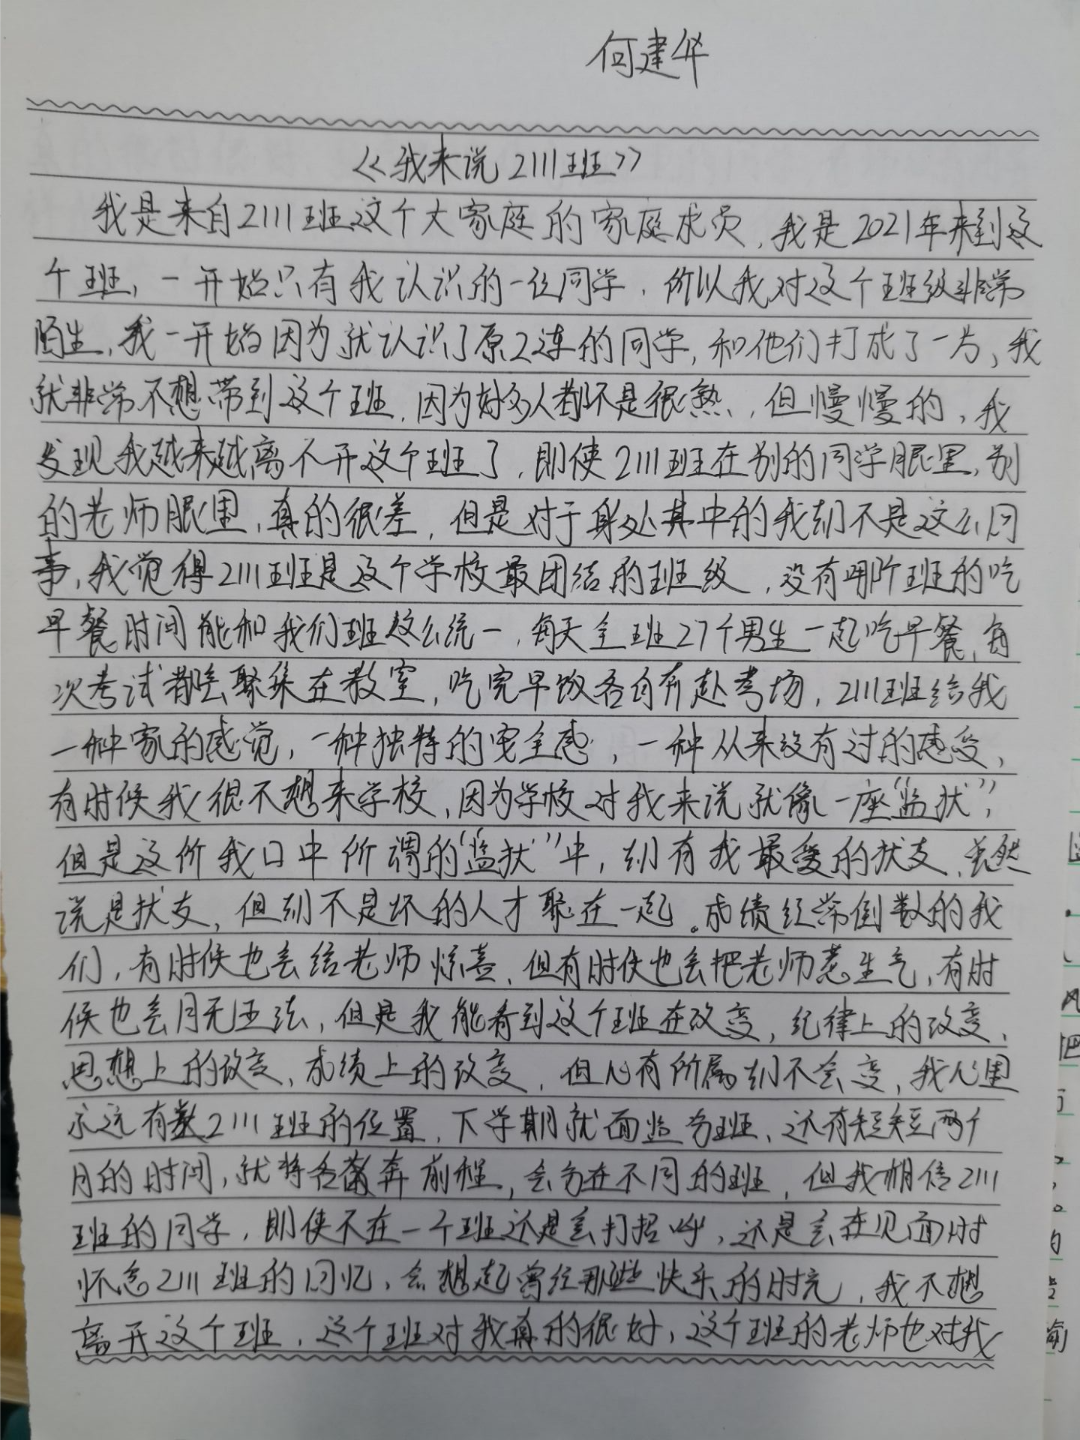 何建华
《我来说2111班》
我是来自2111班这个大家庭的家庭成员,我是2021年来到这
个班,一开始只有我认识的一位同学,所以我对这个班级非常
陌生,我一开始因为就认识了原2连的同学,和他们打成了一片,我
就非常不想带到这个班,因为好多人都不是很熟,但慢慢的,我
发现我越来越离不开这个班了,即使2111班在别的同学眼里,别
的老师眼里,真的很差,但是对于身处其中的我却不是这么回
事,我觉得2111班是这个学校最团结的班级,没有哪个班的吃
早餐时间能和我们班这么统一,每天全班27个男生一起吃早餐,每
次考试都会聚集在教室,吃完早饭各自奔赴考场,2111班给我
一种家的感觉,一种独特的安全感,一种从来没有过的感受,
有时候我很不想来学校,因为学校对我来说就像一座“监狱”,
但是这所我口中所谓的“监狱”中,却有我最爱的狱友,虽然
说是狱友,但却不是坏的人才聚在一起。成绩经常倒数的我
们,有时候也会给老师惊喜,但有时候也会把老师惹生气,有时
候也会目无王法,但是我能看到这个班在改变,纪律上的改变,
思想上的改变,成绩上的改变,但心有所属却不会变,我心里
永远有2111班的位置,下学期就面临分班,还有短短两个
月的时间,就将各奔前程,会分在不同的班,但我相信2111
班的同学,即使不在一个班还是会打招呼,还是会在见面时
怀念2111班的回忆,会想起曾经那些快乐的时光,我不想
离开这个班,这个班对我真的很好,这个班的老师也对我